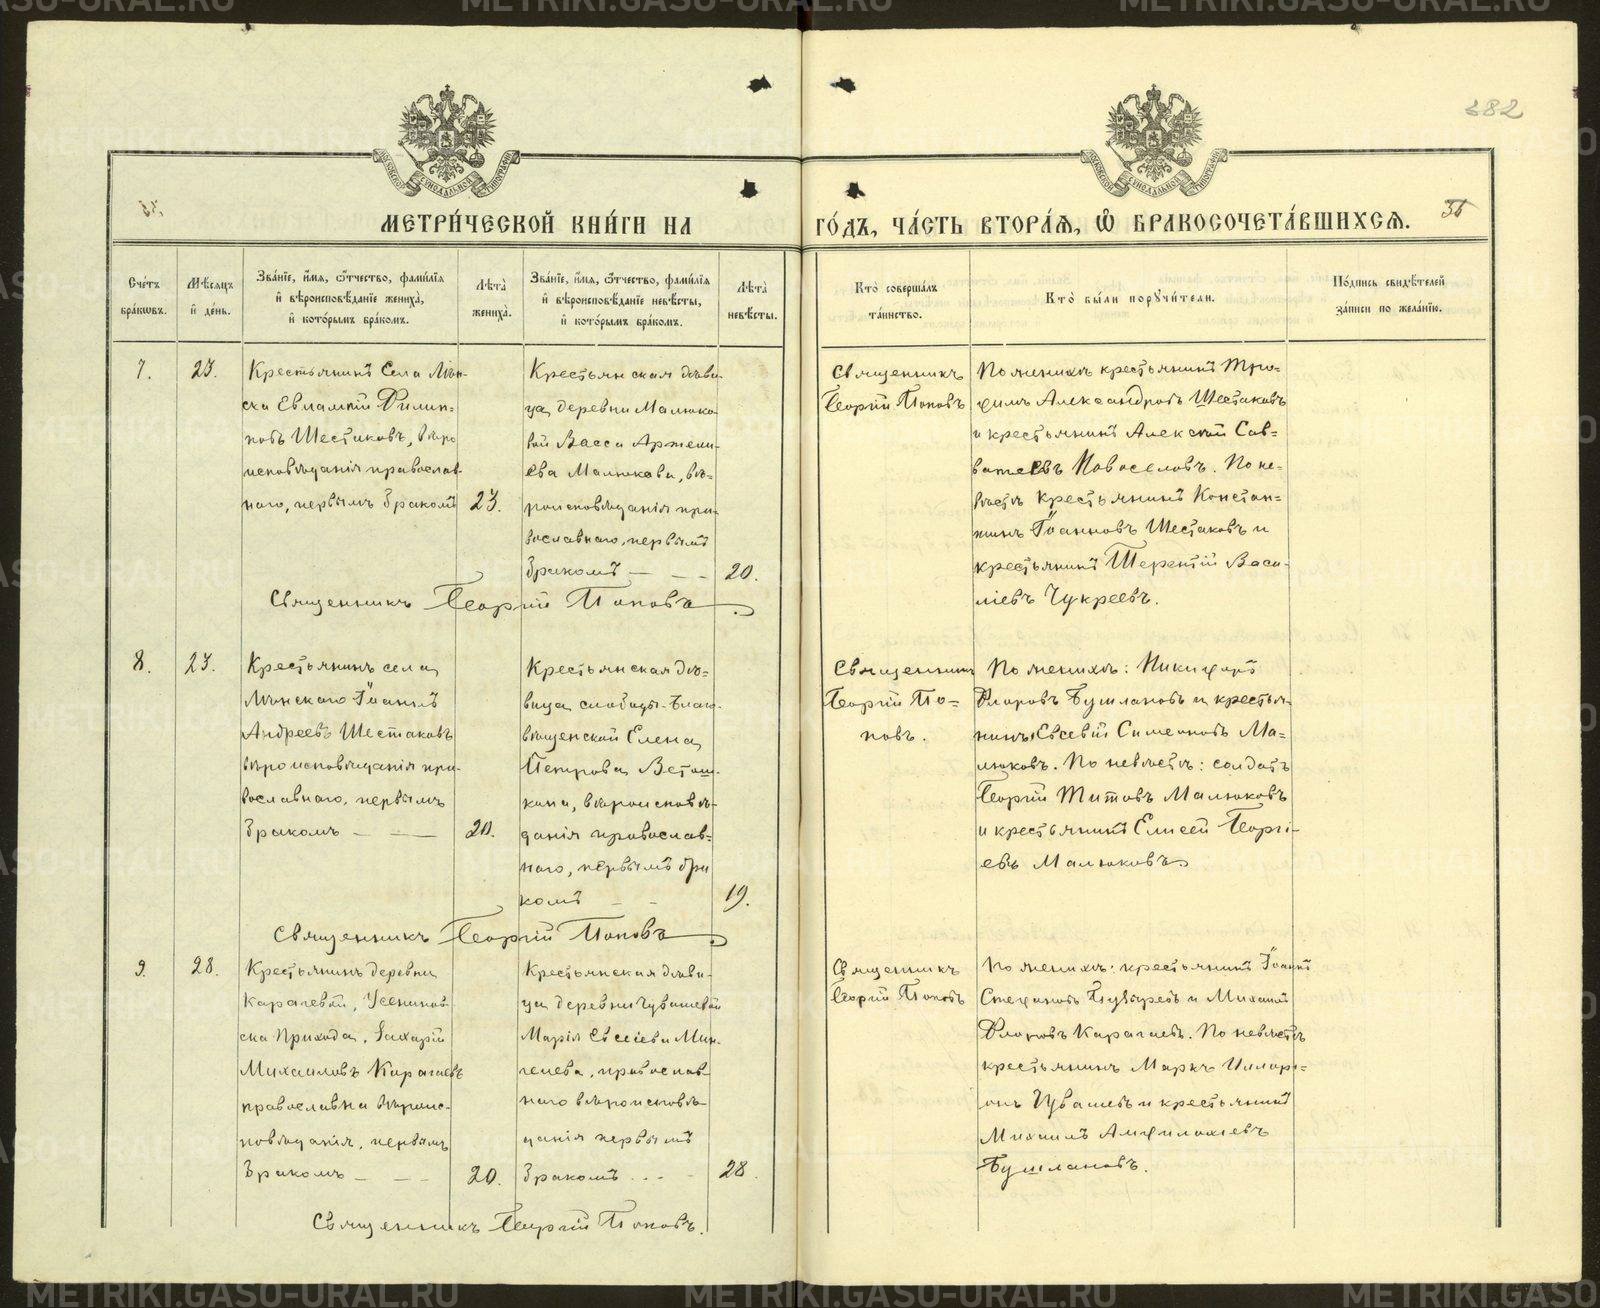 382
МЕТРИ́ЧЕСКОЙ КНИ́ГИ НА ГО́ДЪ, ЧА́СТЬ ВТОРА́Я, Ѡ҆ БРАКОСОЧЕТА́ВШИХСѦ.
35
Сче́тъ бра́кѡвъ.
Мѣ́сяцъ и҆ де́нь.
Зва́нїе, и҆́мѧ, ѻ҆́тчество, фами́лїѧ
и҆ вѣроисповѣ́данїе жениха̀,
и҆ кото́рымъ бра́комъ.
Лѣта̀ жениха̀.
Зва́нїе, и҆́мѧ, ѻ҆́тчество, фами́лїѧ
и҆ вѣроисповѣ́данїе невѣ́сты,
и҆ кото́рымъ бра́комъ.
Лѣта̀ невѣ́сты.
Кто̀ соверша́лъ та́инство.
Кто̀ бы́ли порꙋчи́тели.
По́дпись свидѣ́телей за́писи по жела́нїю.
7.
23.
Крестьянинъ Села
Евлампій Филип-
повъ Шестаковъ, вѣро
исповѣданія православ-
наго, первымъ бракомъ
23.
Крестьянская дѣви-
ца деревни Малюко-
вой Васса
ева Малюкова, вѣ-
роисповѣданія пра-
вославнаго, первымъ
бракомъ — — —
20.
Священникъ
Георгій Поповъ
По женихѣ крестьянинъ Тро-
фимъ Александровъ Шестаковъ
и крестьянинъ Алексѣй Сав-
ватеевъ Новоселовъ. По не-
вѣстѣ крестьянинъ Констан-
тинъ Іоанновъ Шестаковъ и
крестьянинъ Терентій Васи-
ліевъ Чукреевъ.
Священникъ Георгій Поповъ
8.
23.
Крестьянинъ села
Іоаннъ
Андреевъ Шестаковъ
вѣроисповѣданія пра-
вославнаго, первымъ
бракомъ — —
20.
Крестьянская дѣ-
вица слободы Благо-
вѣщенской Елена
Петрова Ветош-
кина, вѣроисповѣ-
данія православ-
наго, первымъ бра
комъ — —
19.
Священникъ
Георгій По-
повъ.
По женихѣ: Никифоръ
Флоровъ Бушлановъ и крестья-
нинъ Евсевій Симеоновъ Ма-
люковъ. По невѣстѣ: солдатъ
Георгій Титовъ Малюковъ
и крестьянинъ Елисей Георгі-
евъ Малюковъ
Священникъ Георгій Поповъ
9.
28.
Крестьянинъ деревни
Карагаевой,
ска прихода, Захарій
Михаиловъ Карагаевъ
православна вѣроис-
повѣданія, первымъ
бракомъ — — —
20.
Крестьянская дѣви-
ца деревни Чувашевой
Марія Евсеіева Мин-
гелева, православ-
наго вѣроисповѣ-
данія первымъ
бракомъ . . . —
28.
Священникъ
Георгій Поповъ
По женихѣ: крестьянинъ Іоаннъ
Стефановъ и Михаилъ
Флоровъ Карагаевъ. По невѣстѣ
крестьянинъ Маркъ Иларі-
онъ Чувашевъ и крестьянинъ
Михаилъ Амфилохіевъ
Бушлановъ.
Священникъ Георгій Поповъ.
METRIKI.GASO-URAL.RU